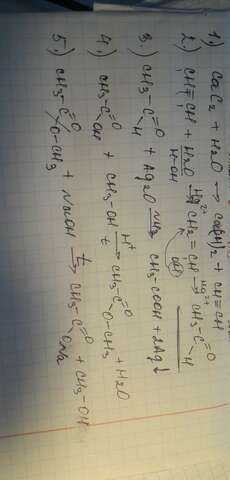 1) CaC2 + H2O → Ca(OH)2 + CH≡CH
2.) CH≡CH + H2O Hg2+→ CH2=CH Hg2+→ CH3-C=O
H-OH OH H
3.) CH3-C=O + Ag2O NH3→ CH3-COOH + 2Ag↓
H
4.) CH3-C=O + CH3-OH H+→ CH3-C=O + H2O
OH t O-CH3
5.) CH3-C=O + NaOH t→ CH3-C=O + CH3-OH
O-CH3 ONa